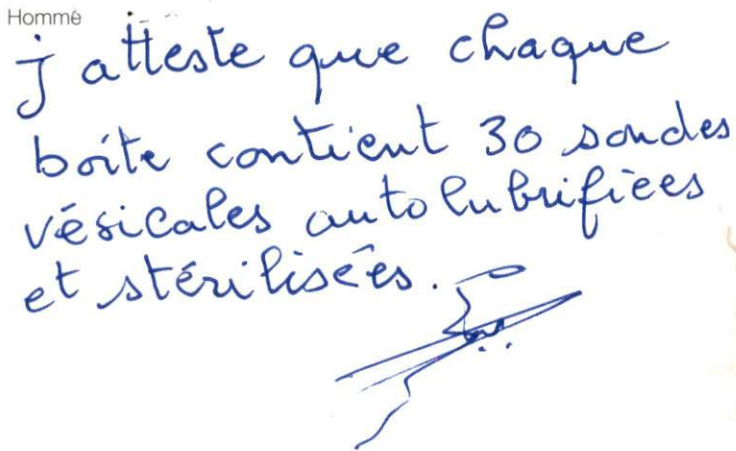 Homme
j atteste que chaque
boîte contient 30 sondes
vésicales autolubrifiées
et stérilisées.